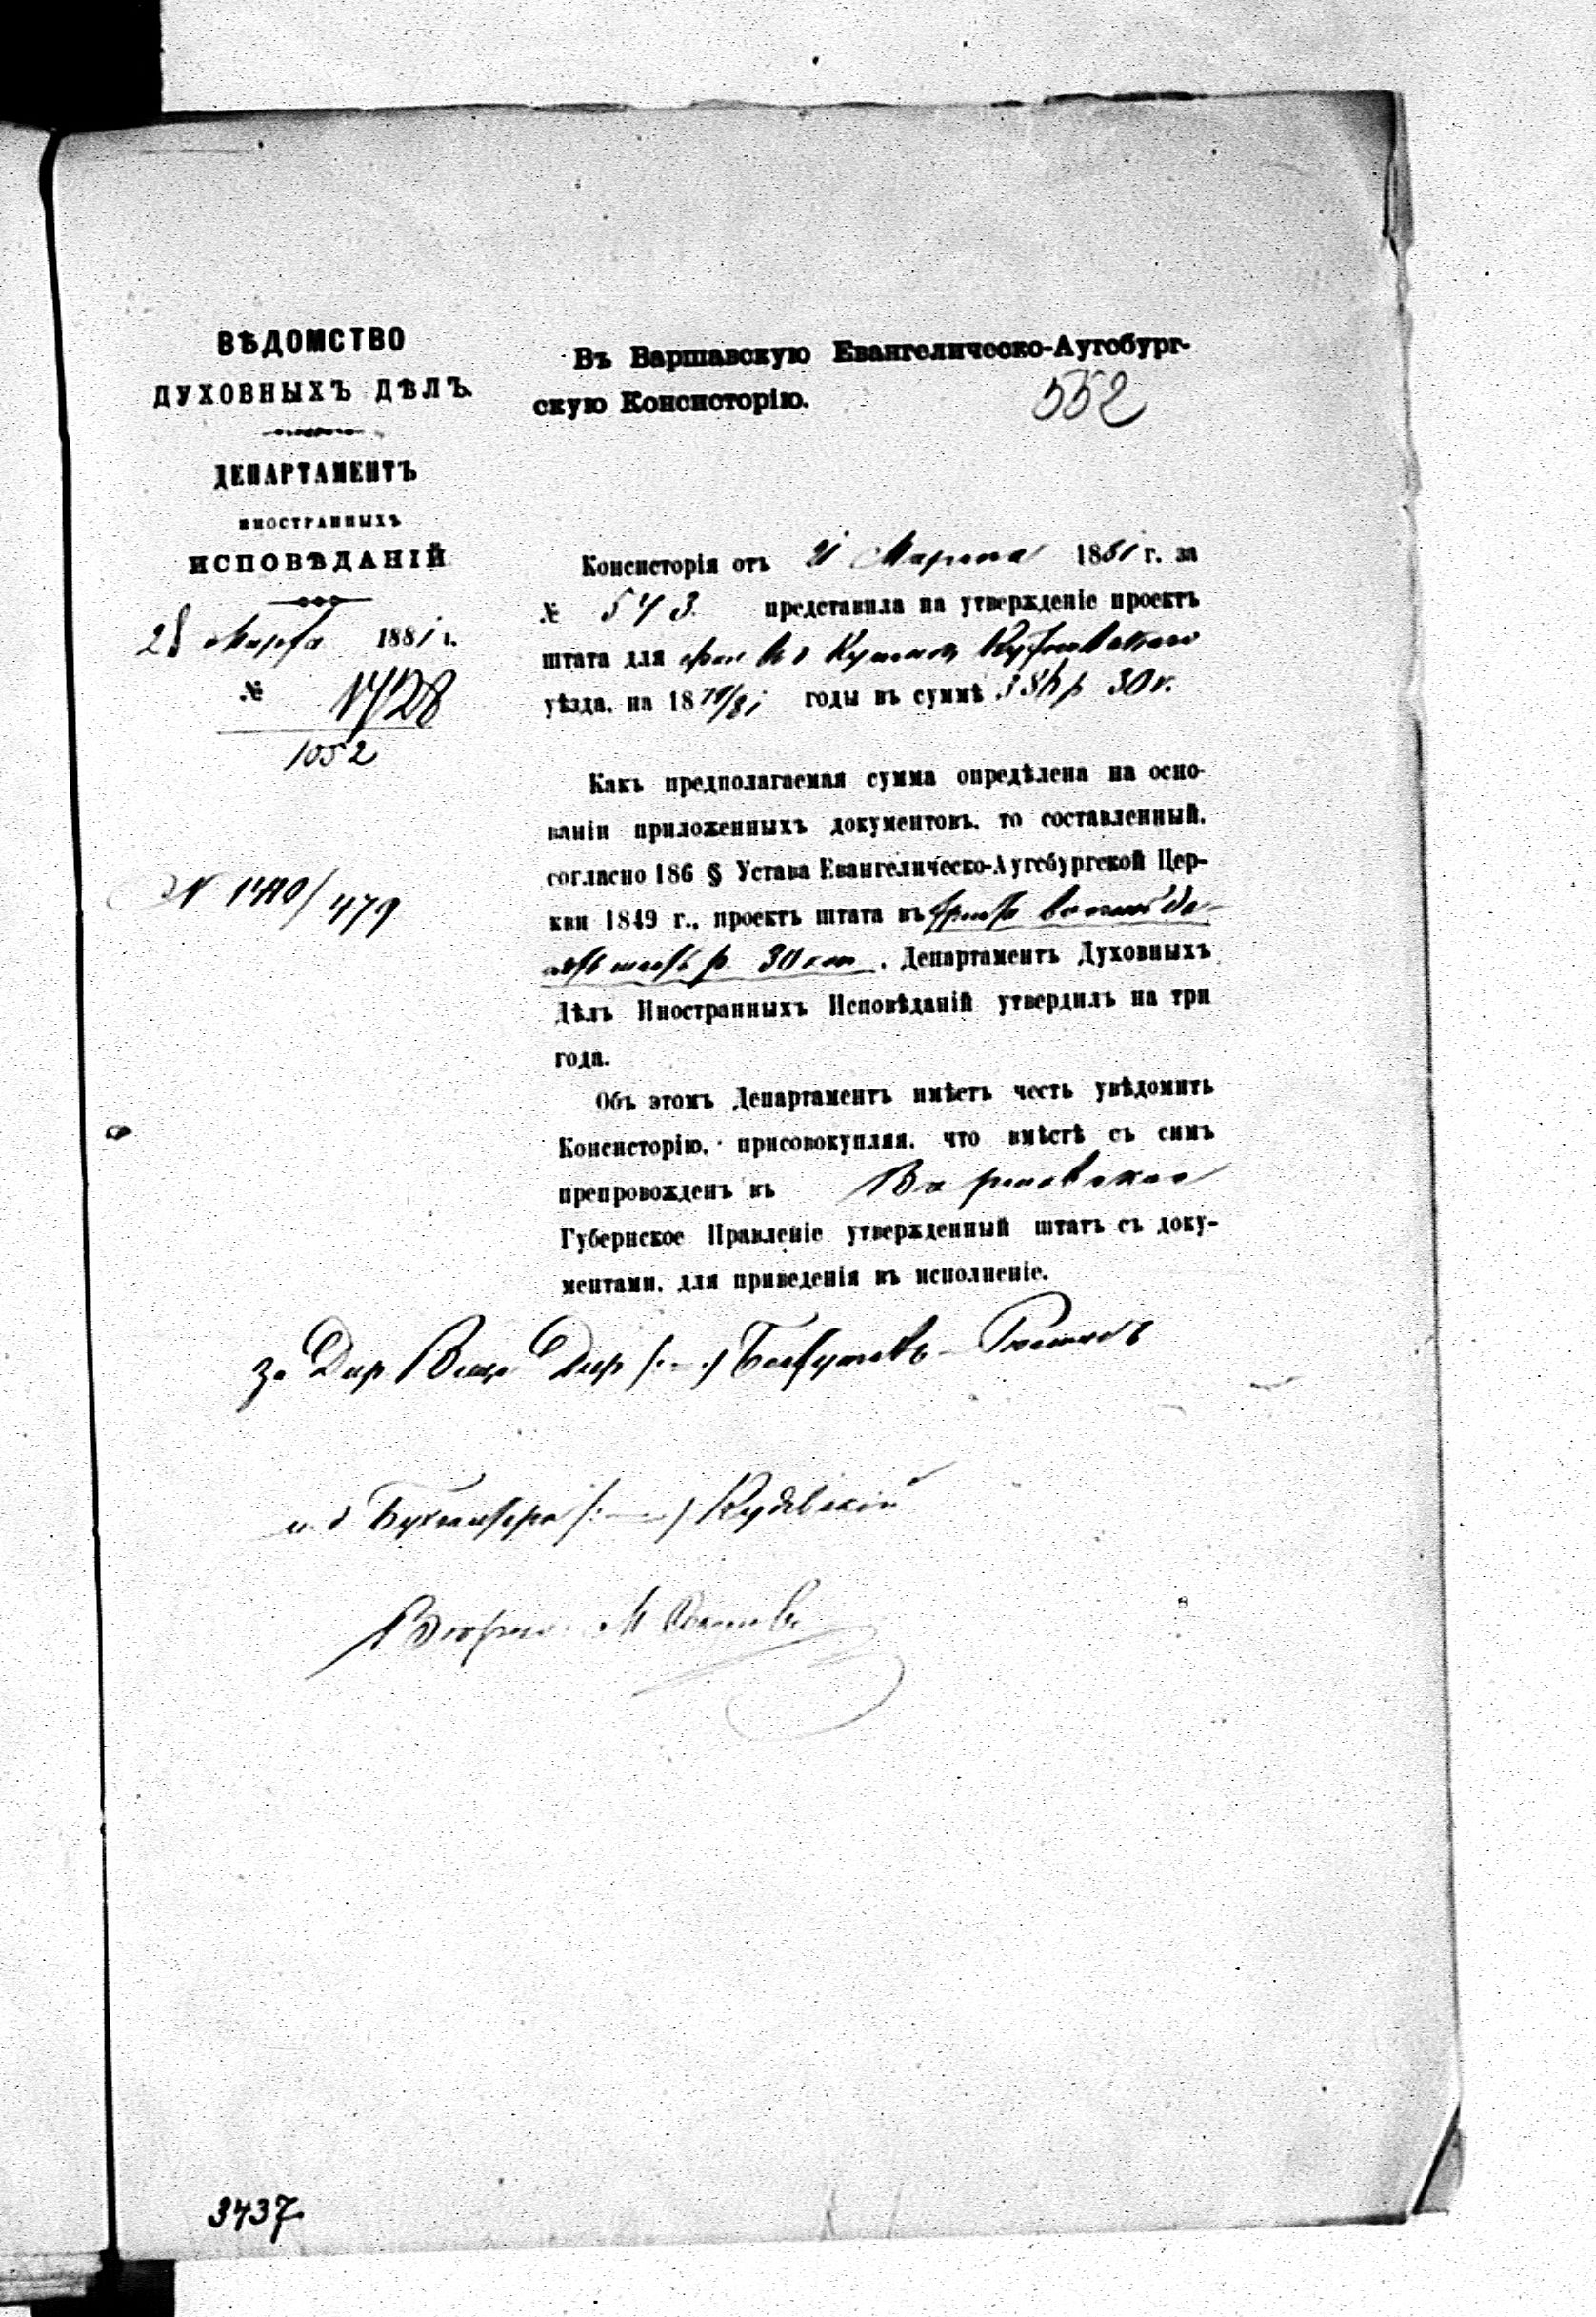 ВѢДОМСТВО
ДУХОВНЫХЪ ДѢЛЪ.
ДЕПАРТАМЕНТЪ
ИНОСТРАННЫХЪ
ИСПОВѢДАНІЙ
28 Марта 1881 г.
№ 1728
1052
N 1480/479
Въ Варшавскую Евангелическо-Аугсбург-
скую Консисторію.
552
Консисторія отъ 21 Марта 1881 г. за
№ 543 представила на утвержденіе проектъ
штата для въ Кутновскаго
уѣзда, на 1879/81 годы въ суммѣ 386 р 30 к.
Какъ предполагаемая сумма опредѣлена на осно-
ваніи приложенныхъ документовъ, то составленный,
согласно 186 § Устава Евангелическо-Аугсбургской Цер-
кви 1849 г., проектъ штата въ триста восемьде-
сятъ шесть р. 30 коп, Департаментъ Духовныхъ
Дѣлъ Иностранныхъ Исповѣданій утвердилъ на три
года.
Объ этомъ Департаментъ имѣетъ честь увѣдомить
Консисторію, присовокупляя, что вмѣстѣ съ симъ
препровожденъ въ Варшавское
Губернское Правленіе утвержденный штатъ съ доку-
ментами, для приведенія въ исполненіе.
За Дир Вице Дир
и. д Бухгалтера
3437